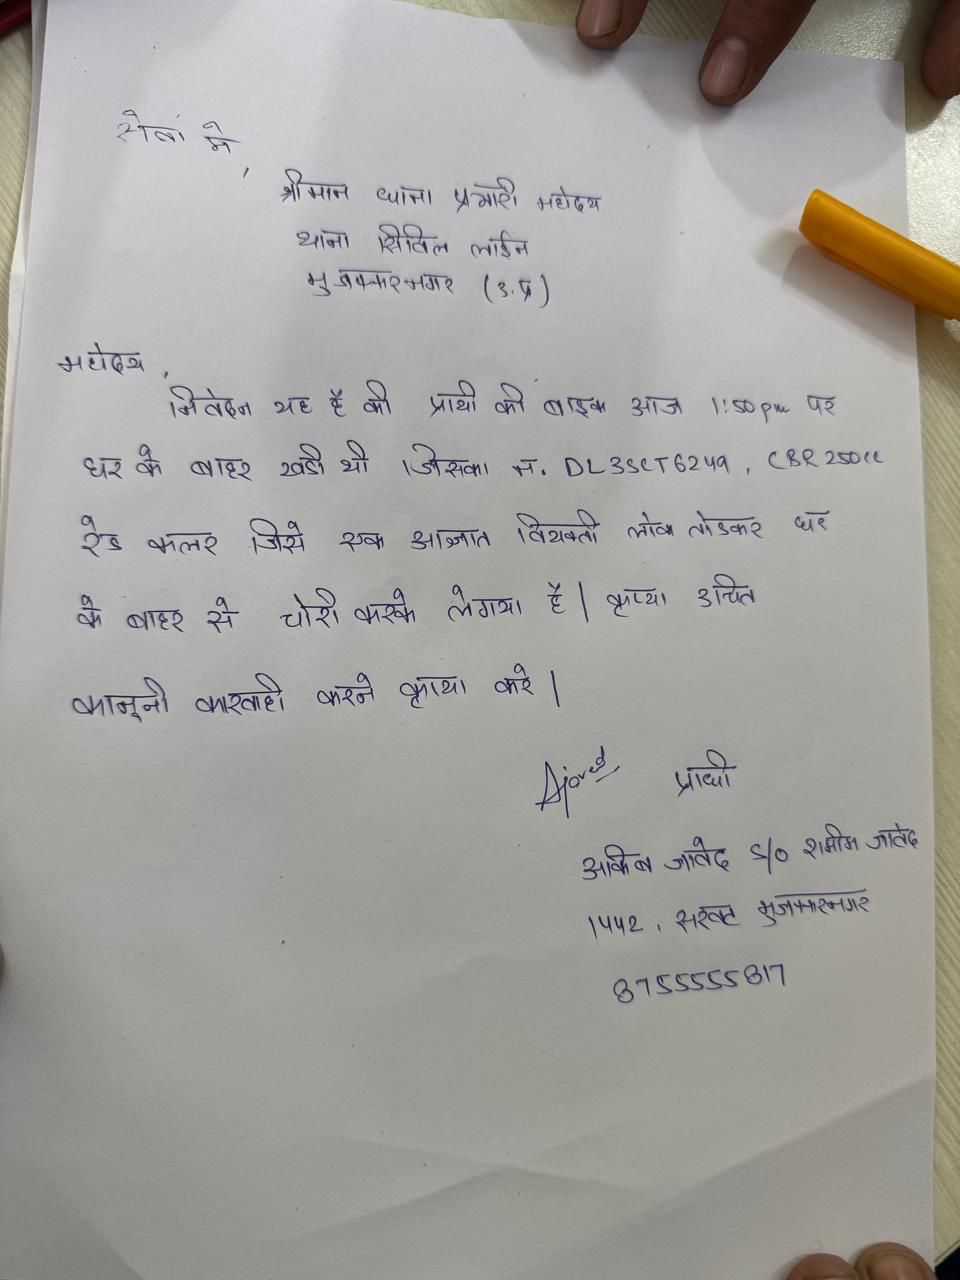 सेवां मे,
श्रीमान थाना प्रभारी महोदय
थाना सिविल लाईन
मुजफ्फरनगर (उ.प्र)
महोदय,
निवेदन यह है की प्रार्थी की बाइक आज 1:50 pm पर
घर के बाहर खडी थी जिसका न. DL3SCT6249, CBR 250CC
रेड कलर जिसे एक आज्ञात वियक्ती लोक तोडकर घर
के बाहर से चोरी करके लेगया है। कृप्या उचित
कानूनी कारवाही करने कृप्या करे।
Ajaved प्रार्थी
आकिब जावेद S/O शमीम जावेद
1442, सरवट मुजफ्फरनगर
8755555817